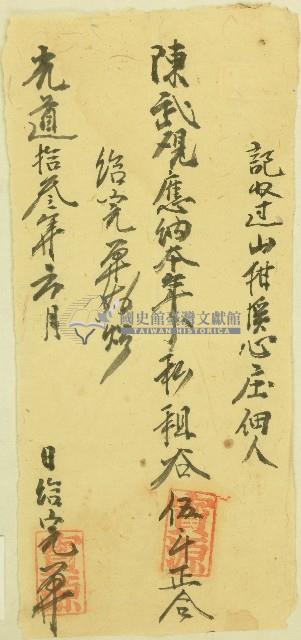 記收过山柑溪心庄佃人
陳武观應納本年分私租谷伍斗正合
給完單為炤
光道拾叁年六月 日給完單
寶源
寶源
國史館臺灣文獻館
TAIWAN HISTORICA